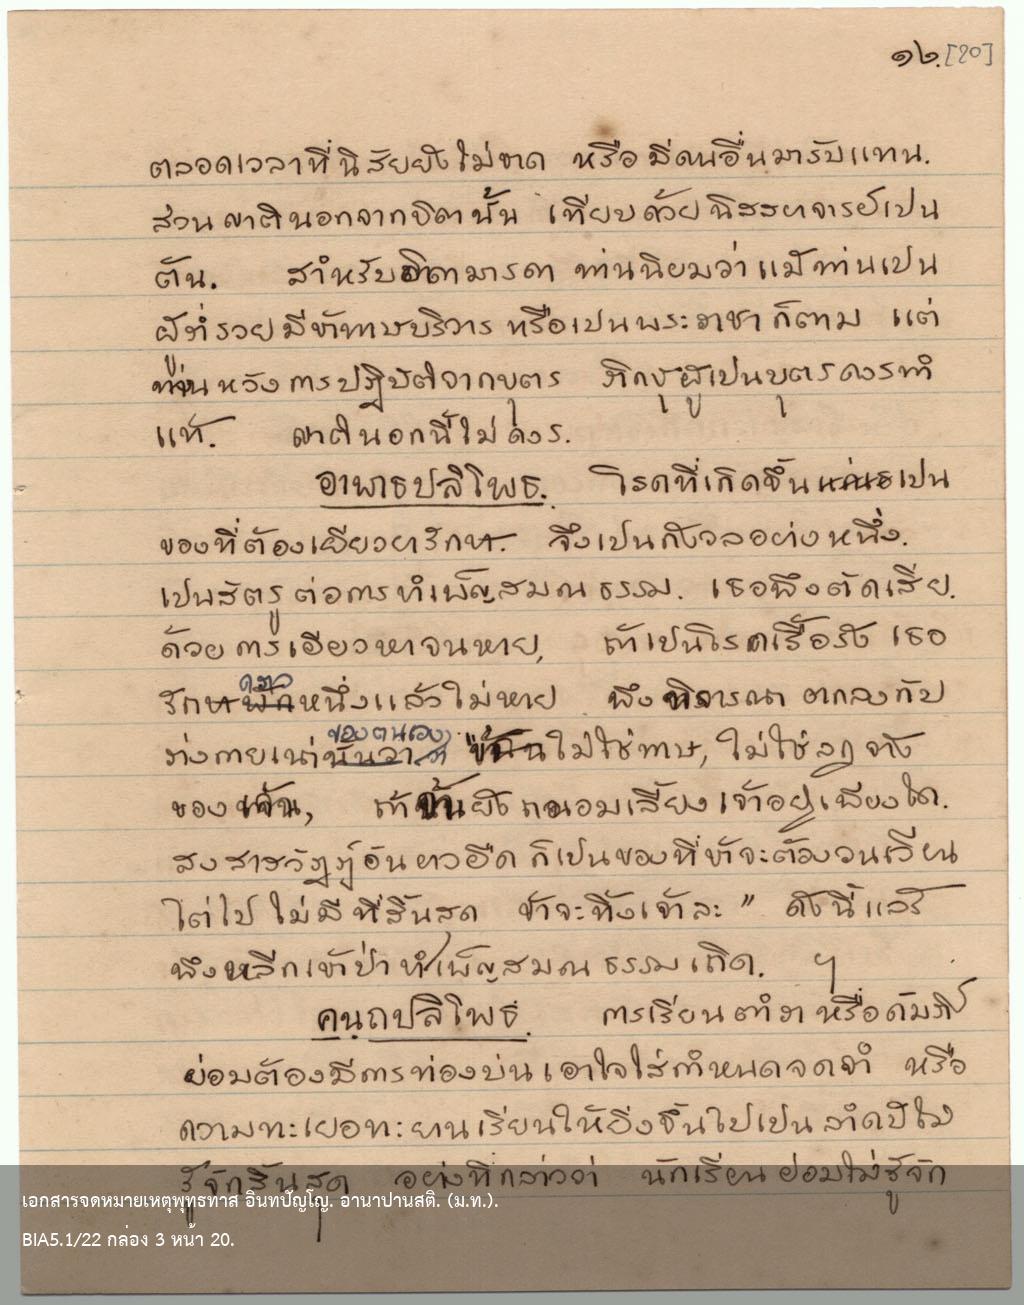 ๑๖. [20]
ตลอดเวลาที่นิสัยยังไม่ขาด หรือมีคนอื่นมารับแทน.
ส่วนญาตินอกจากบิดานั้น เทียบด้วยนิสสยาจารย์เปน
ต้น. สำหรับบิดามารดา ท่านนิยมว่าแม้ท่านเปน
ผู้ร่ำรวยมีข้าทาษบริวาร หรือเปนพระราชาก็ตาม แต่
ท่านหวังการปฏิบัติจากบุตร ภิกษุผู้เปนบุตรควรทำ
แท้. ญาตินอกนี้ไม่ควร.
อาพาธปลิโพธ. โรคที่เกิดขึ้น เปน
ของที่ต้องเยียวยารักษา. จึงเปนกังวลอย่างหนึ่ง.
เปนสัตรูต่อการบำเพ็ญสมณธรรม. เธอพึงตัดเสีย.
ด้วยการเยียวยาจนหาย, ถ้าเปนโรคเรื้อรัง เธอ
รักษา คราวหนึ่งแล้วไม่หาย พึงพิจารณา ตกลงกับ
ร่างกายเน่าของตนเองว่า "ข้า ไม่ใช่ทาษ, ไม่ใช่ลูกจ้าง
ของเจ้า, ถ้า ยังถนอมเลี้ยงเจ้าอยู่เพียงใด.
สงสารวัฏฏ์อันยาวยืด ก็เปนของที่ข้าจะต้องวนเวียน
ไต่ไป ไม่มีที่สิ้นสุด ข้าจะทิ้งเจ้าละ" ดังนี้แล้ว
พึงหลีกเข้าป่า บำเพ็ญสมณธรรมเถิด. ฯ
คนฺถปลิโพธ. การเรียนตำราหรือคัมภีร์
ย่อมต้องมีการท่องบ่น เอาใจใส่กำหนดจดจำ หรือ
ความทะเยอทะยานเรียนให้ยิ่งขึ้นไปเปนลำดับไม่
รู้จักสิ้นสุด อย่างที่กล่าวว่า นักเรียนย่อมไม่รู้จัก
เอกสารจดหมายเหตุพุทธทาส อินทปัญโญ. อานาปานสติ. (ม.ท.).
BIA5.1/22 กล่อง 3 หน้า 20.